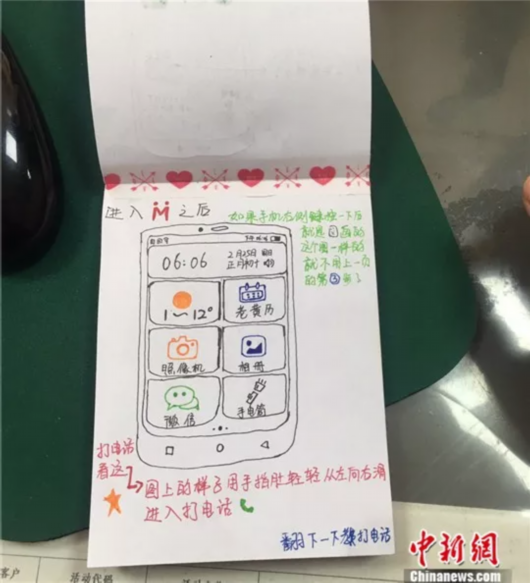 进入 之后
如果手机右侧键按一下后
就是 画的
这个图一样的
就不用上一页
的第③步了
06:06
1～12°
老黄历
照像机
相册
微信
手电筒
打电话
看这
图上的样子用手指肚轻轻从左向右滑
进入打电话
翻下一下 打电话
中新网
Chinanews.com
客户
活动代码
活动名称